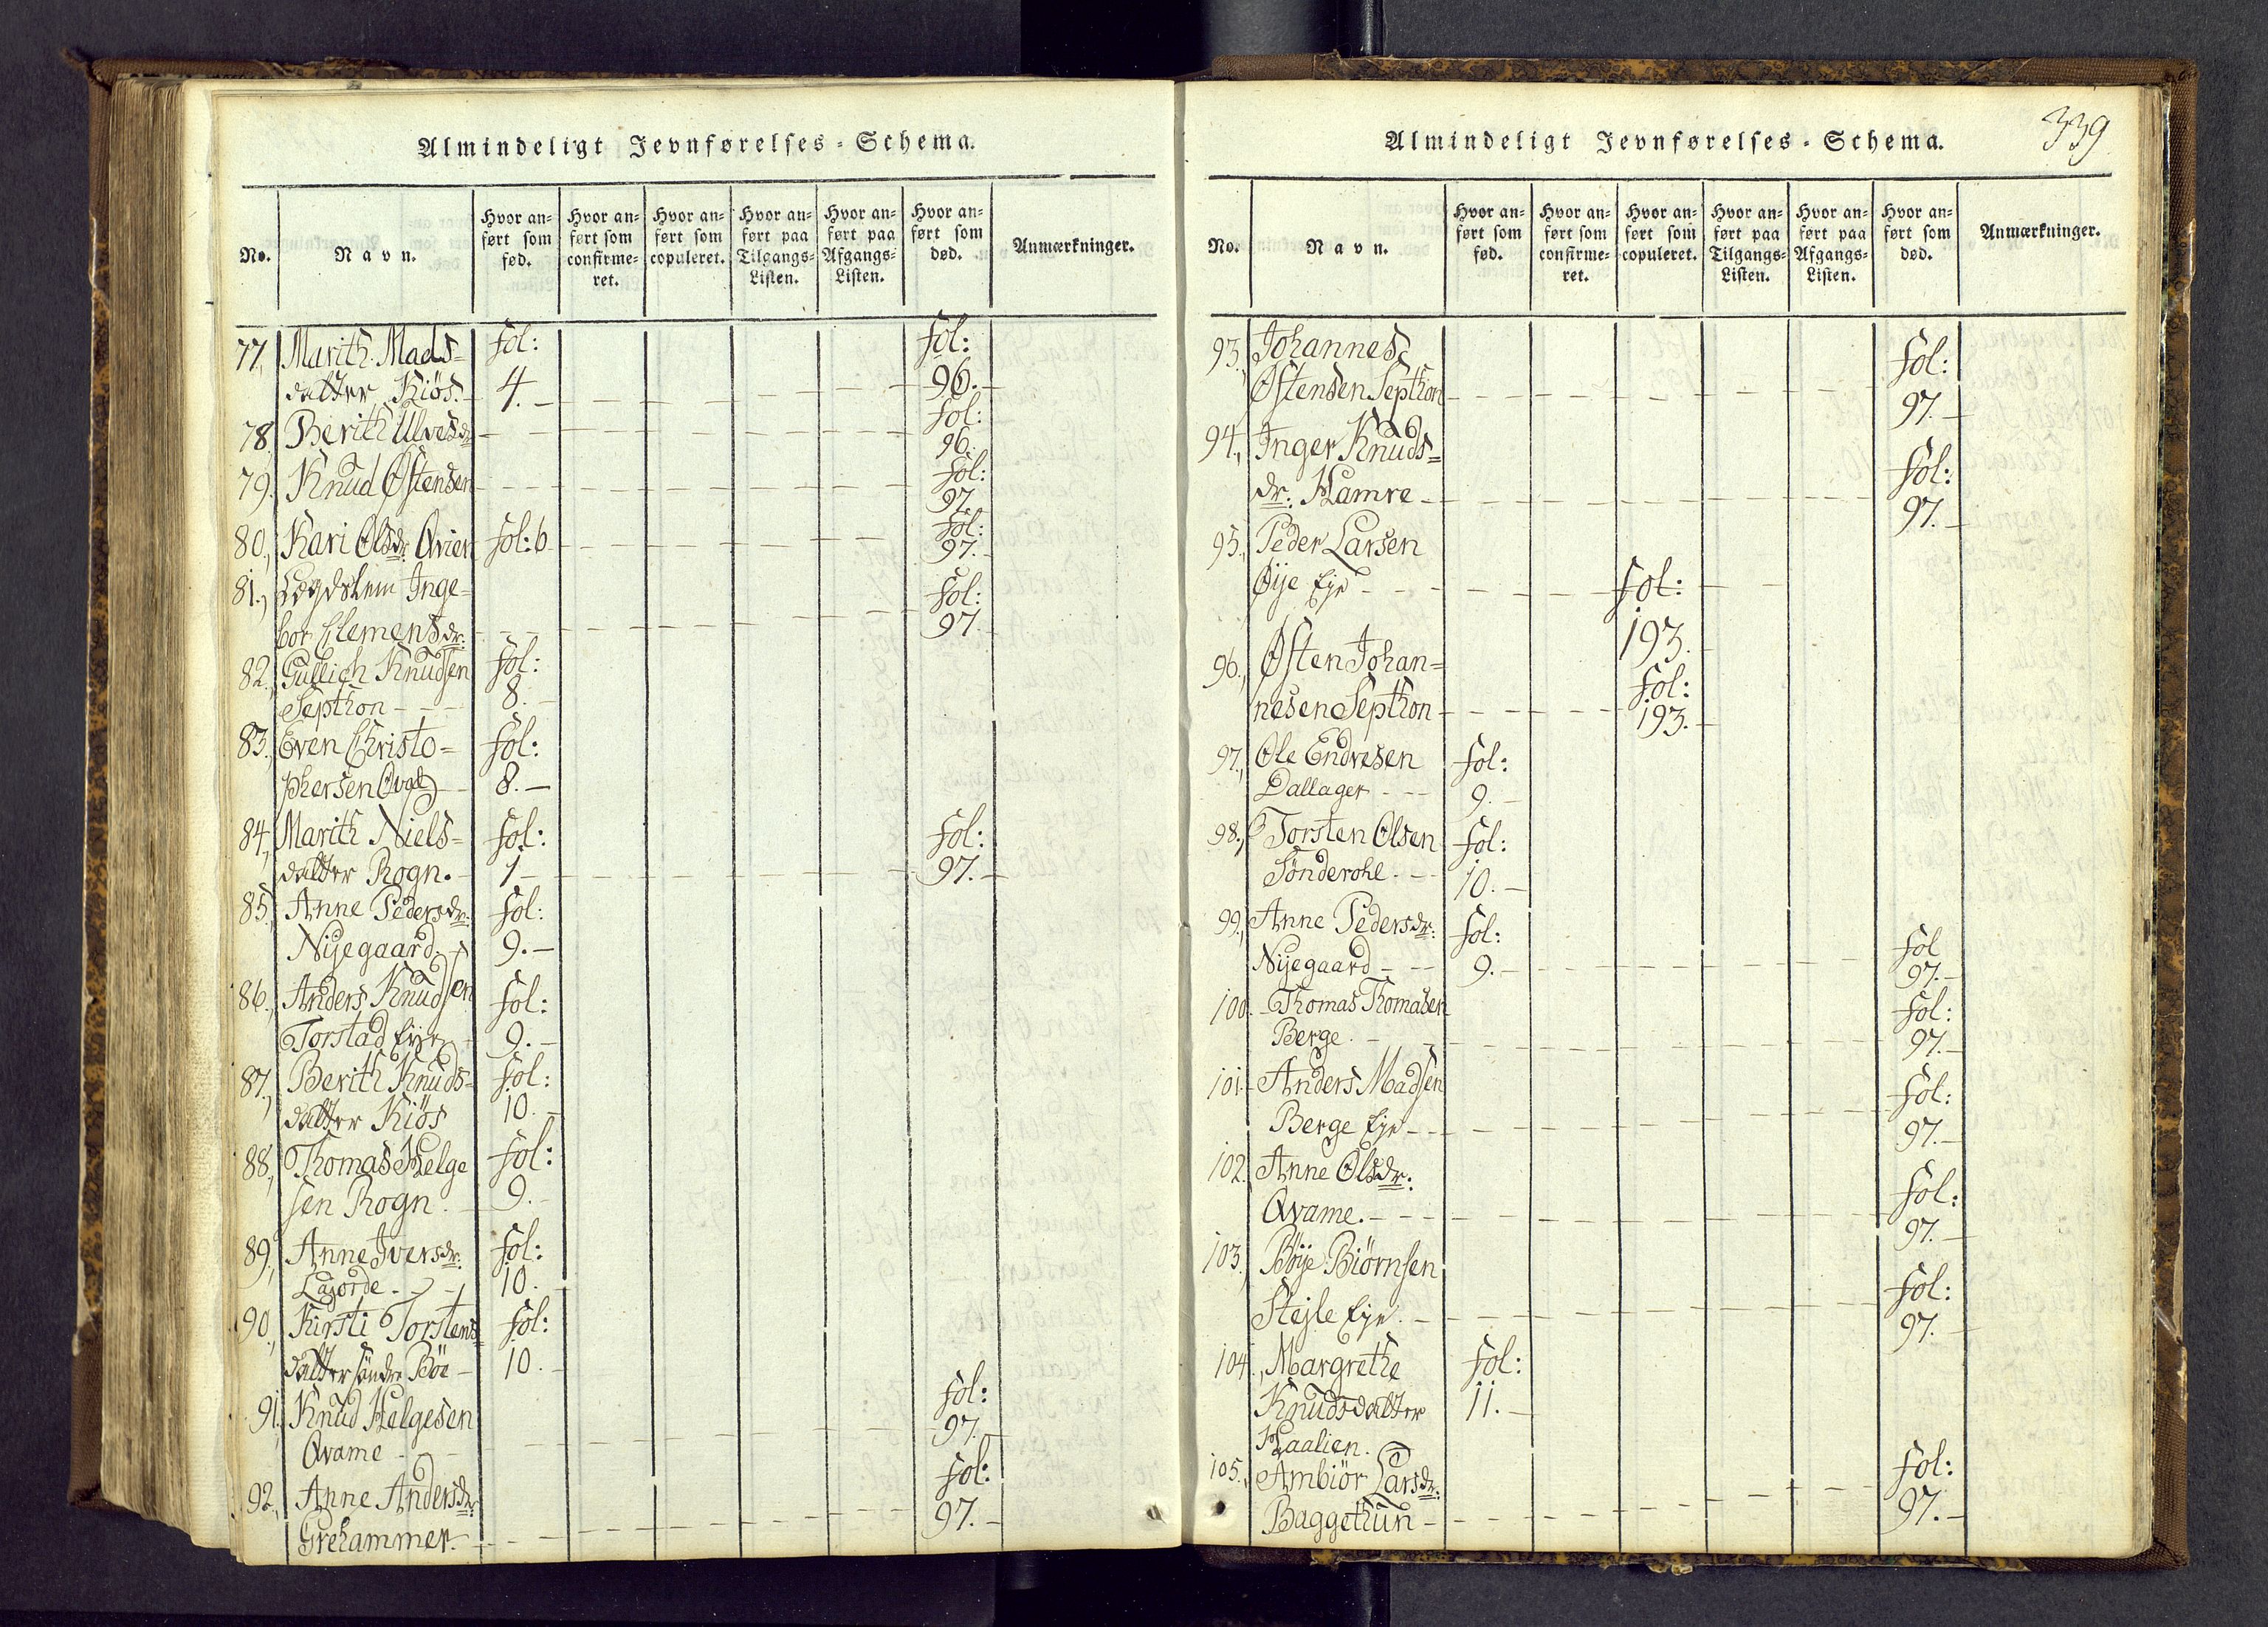 Almindeligt Jevnførelses-Schema.
No.
Navn.
Hvor an-
ført som
fød.
Hvor an-
ført som
confirme-
ret.
Hvor an-
ført som
copuleret.
Hvor an-
ført paa
Tilgangs-
Listen.
Hvor an-
ført paa
Afgangs-
Listen.
Hvor an-
ført som
død.
Anmærkninger.
77, Marith Mads= fol: fol:
datter Kiös. 4. - 96. -
78, Berith Ulvesdr fol: 96.
79. Knud Østensen fol: 97.
80, Kari Olsdr: Qvien fol: 6 fol: 97. -
81., Lægdslem Inge- fol:
bor Clemensdr: 97
82., Gullich Knudsen fol:
Septhon - - - 8. -
83., Even Christo= fol:
phersen 8. -
84, Marith Niels= fol: fol:
datter Rogn. - 1 - 97. -
85, Anne Pedersdr: fol:
Nijegaard. 9. -
86., Anders Knudsen fol:
Torstad Eje 9. -
87, Berith Knuds= fol:
datter Kiös 10. -
88, Thomas Helge fol:
sen Rogn. - 9. -
89., Anne Iversdr: fol:
10. -
90., Kirsti Torstens= fol:
datter söndre Böe - 10. -
91, Knud Helgesen fol:
Qvame - - 97. -
92., Anne Andersdr: fol:
Grehammer. - 97. -
339
Almindeligt Jevnførelses-Schema.
No.
Navn.
Hvor an-
ført som
fød.
Hvor an-
ført som
confirme-
ret.
Hvor an-
ført som
copuleret.
Hvor an-
ført paa
Tilgangs-
Listen.
Hvor an-
ført paa
Afgangs-
Listen.
Hvor an-
ført som
død.
Anmærkninger.
93, Johannes fol:
Østensen Septhon 97. -
94., Inger Knuds= fol:
dr: Hamre - 97. -
95., Peder Larsen
Øije Eje - - - fol:
193.
96., Østen Johan= fol:
nesen Septhon - 193. -
97., Ole Endresen fol:
Dallager - - - 9. -
98., Torsten Olsen fol:
Sönderohl. - - 10. -
99., Anne Pedersdr: fol: fol
Nijegaard - - - 9. - 97. -
100. Thomas Thomasen fol:
Berge. - 97. -
101. Anders Madsen fol:
Berge Eje - - 97. -
102. Anne Olsdr: fol:
Qvame. - - - 97. -
103., Böije Biörnsen fol:
Stejle Eje. - 97. -
104., Margrethe fol:
Knudsdatter 11. -
Haalien.
105., Ambiör Larsdr: fol:
Baggethun - 97. -